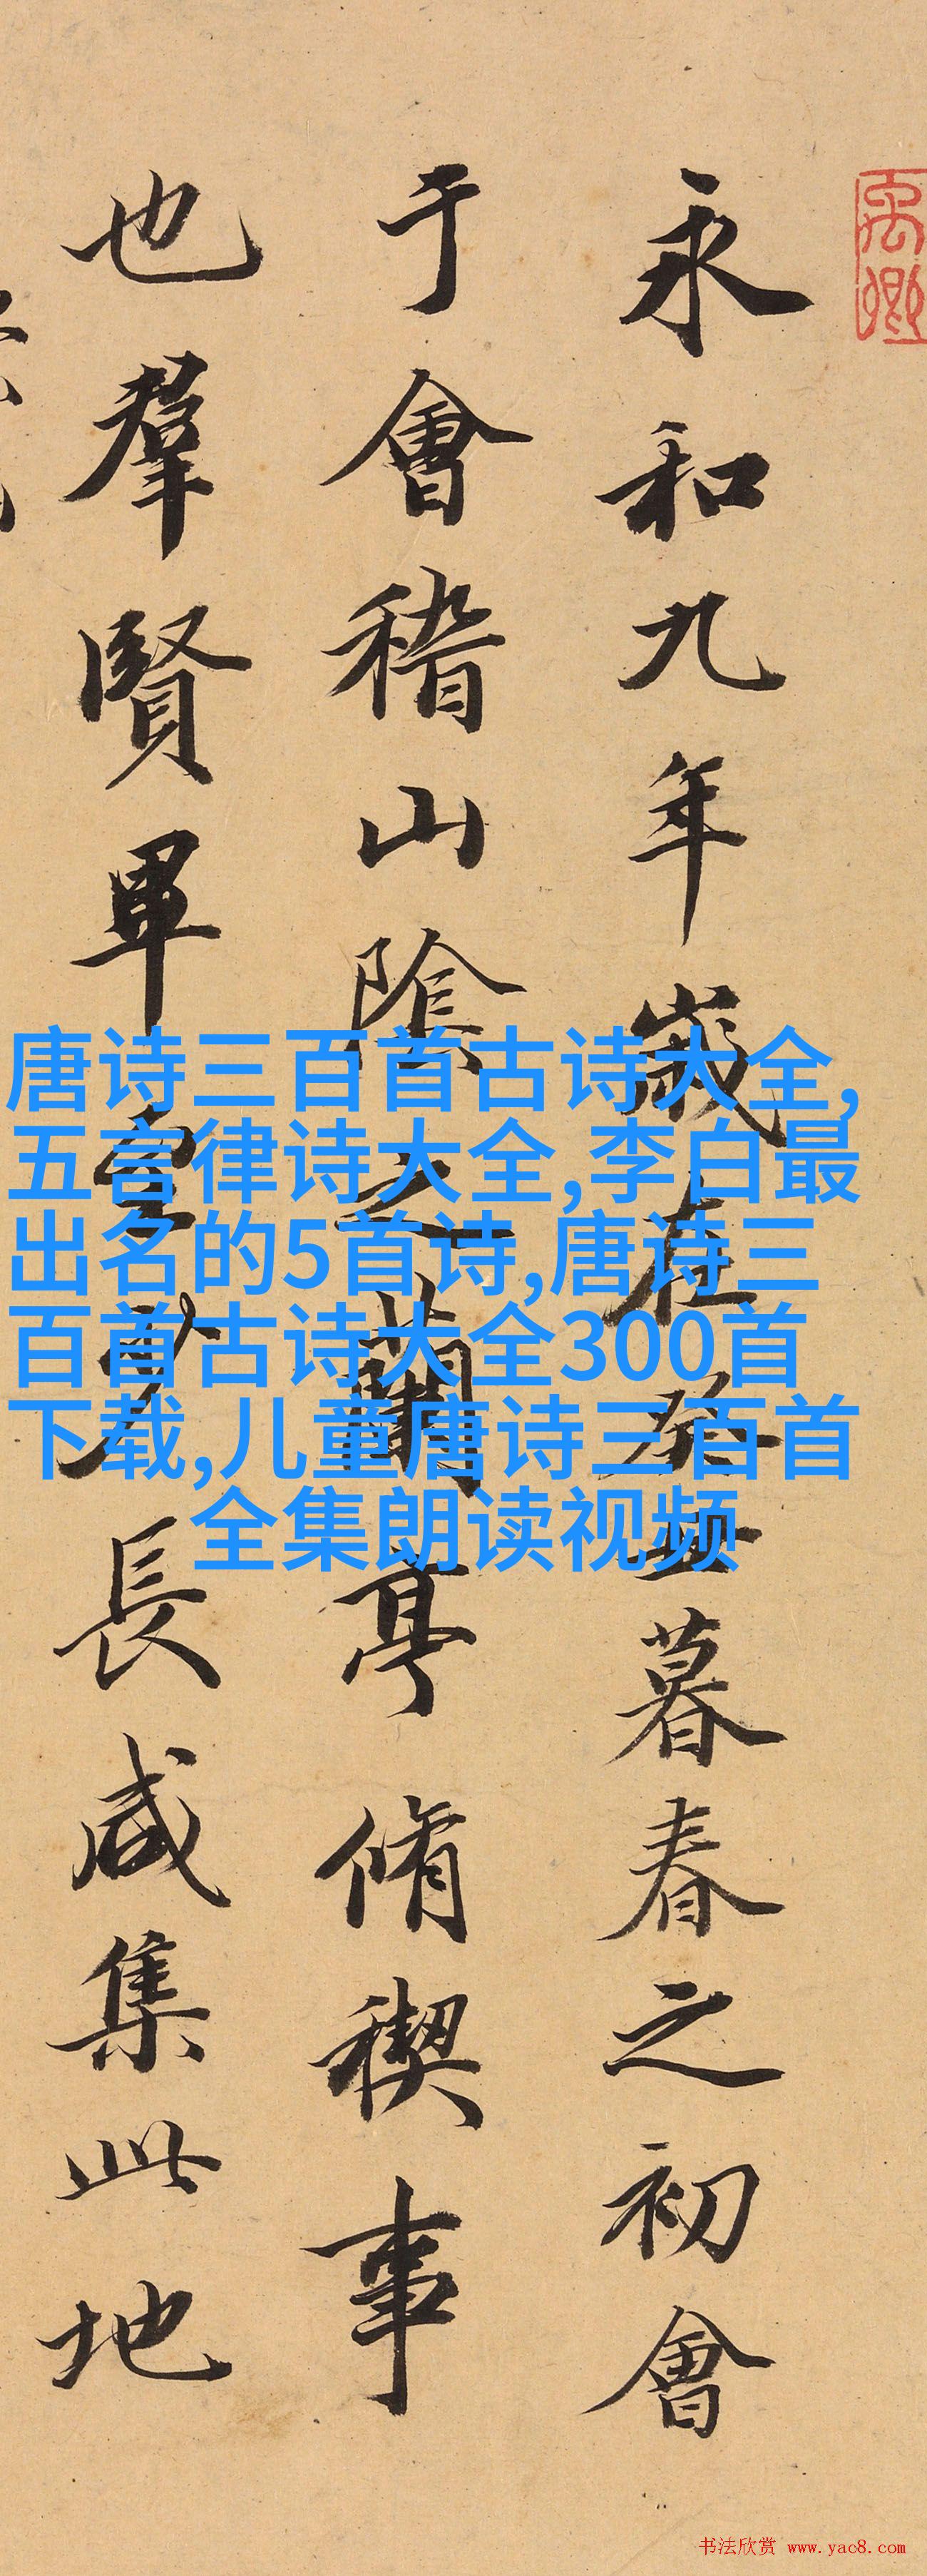 禹卿
永和九年歲在癸丑暮春之初會
于會稽山陰之蘭亭脩稧事
也羣賢畢至少長咸集此地
唐诗三百首古诗大全,
五言律诗大全,李白最
出名的5首诗,唐诗三
百首古诗大全300首
下载,儿童唐诗三百首
全集朗读视频
书法欣赏 www.yac8.com